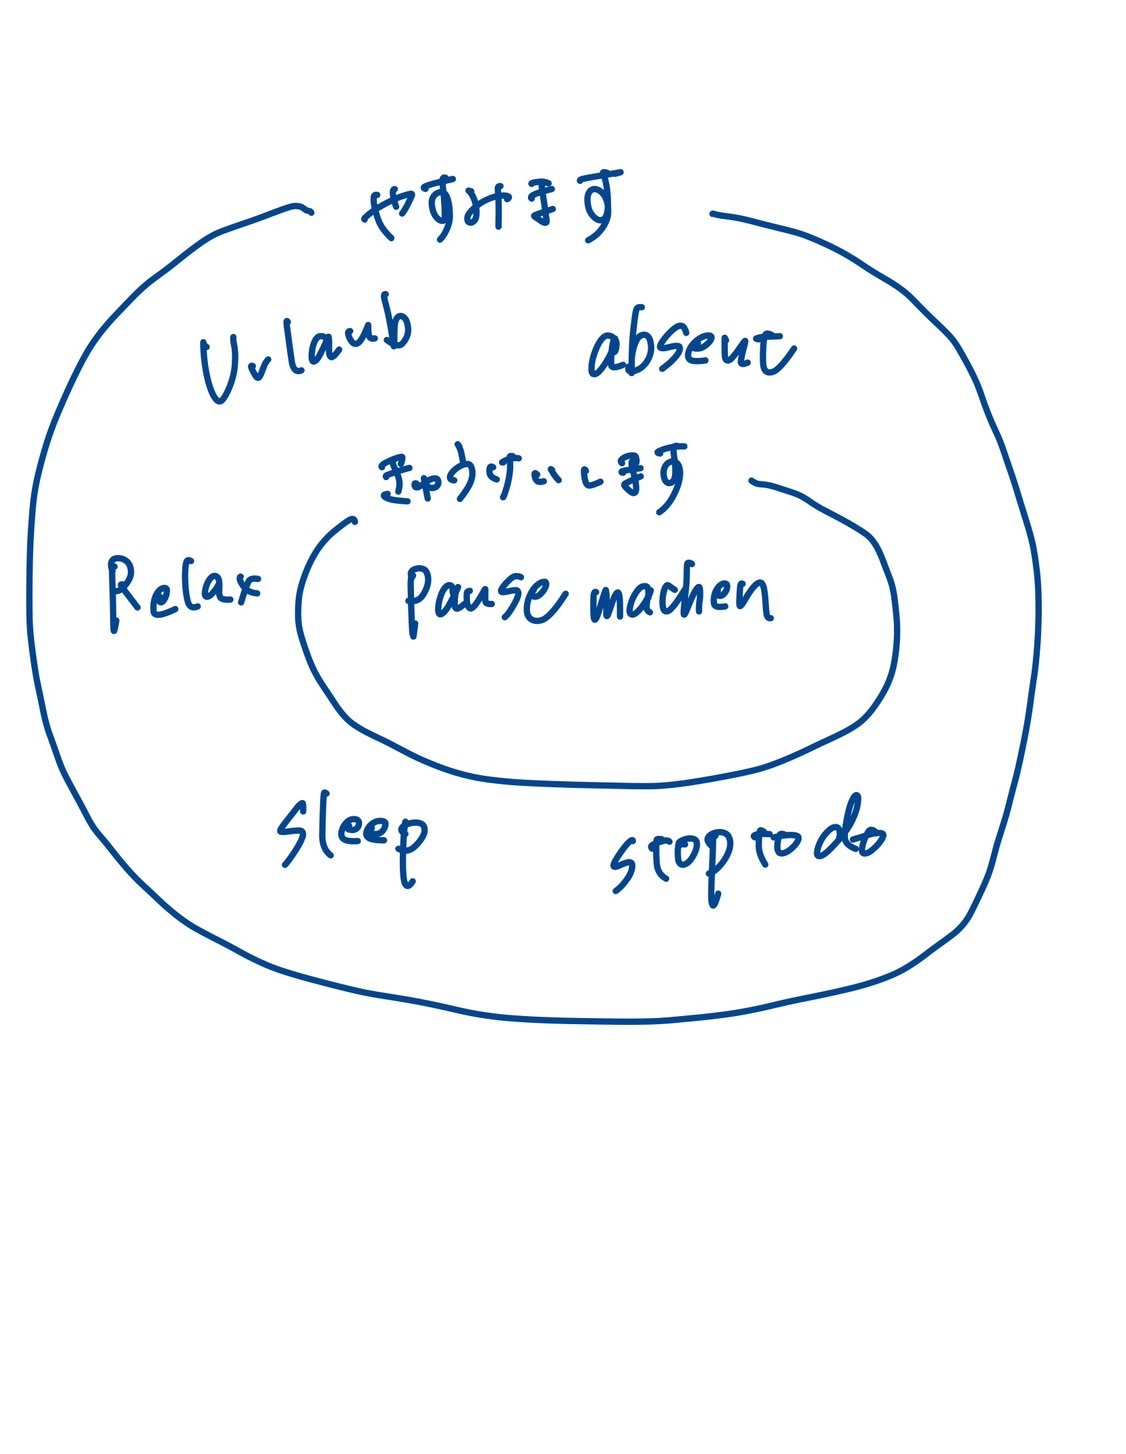 やすみます
Urlaub
absent
きゅうけいします
Relax
Pause machen
sleep
stop to do